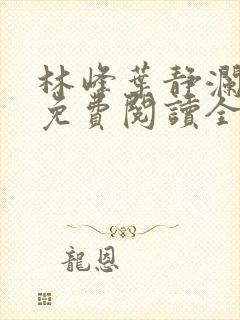 林峰葉靜瀾
免費閱讀全
龍恩